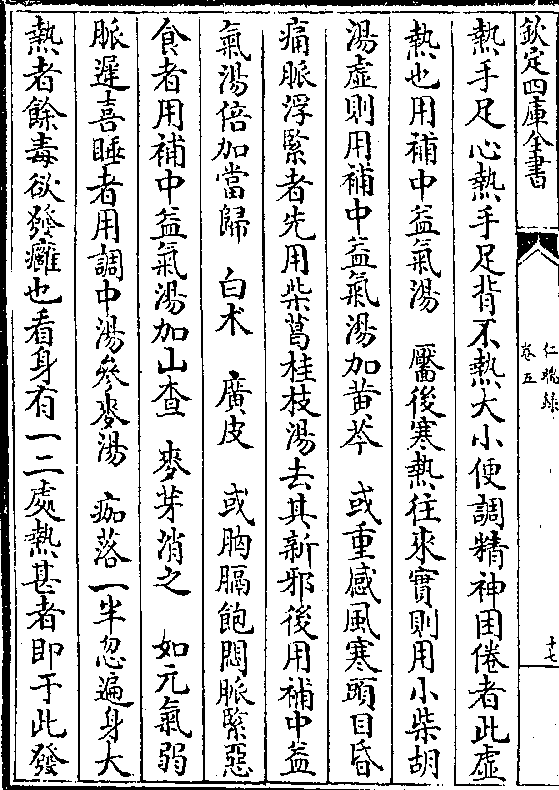 欽定四庫全書
仁端錄
卷五
十七
熱手足心熱手足背不熱大小便調精神困倦者此虛
熱也用補中益氣湯　靨後寒熱往來實則用小柴胡
湯虛則用補中益氣湯加黄芩　或重感風寒頭目昏
痛脈浮緊者先用柴葛桂枝湯去其新邪後用補中益
氣湯倍加當歸　白朮　廣皮　或胸膈飽悶脈緊惡
食者用補中益氣湯加山查　麥芽消之　如元氣弱
脈遲喜睡者用調中湯參麥湯　痂落一半忽遍身大
熱者餘毒欲發癰也看身有一二處熱甚者即于此發